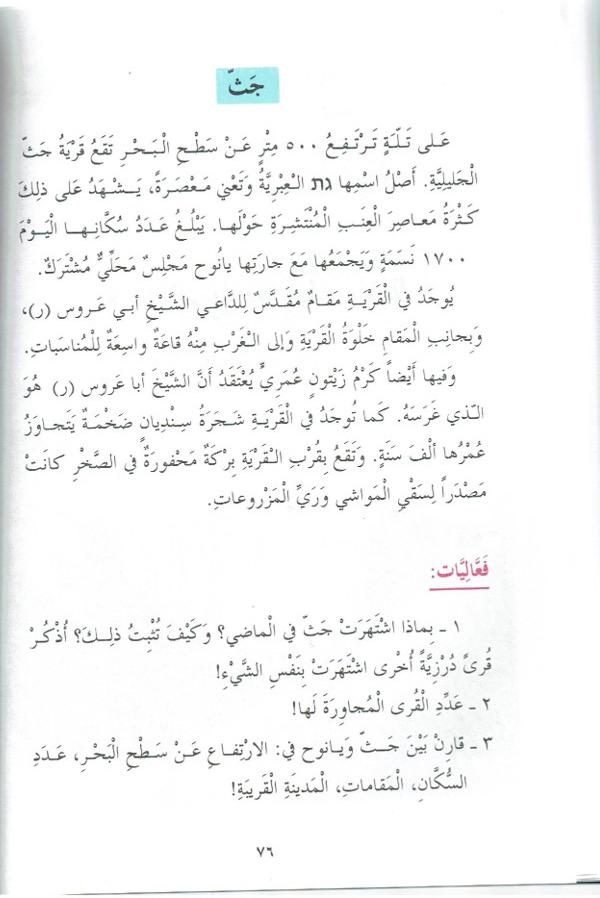 جَثّ
عَـلـى تَـلَّـةٍ تَـرْتَـفِـعُ ٥٠٠ مِتْرٍ عَـنْ سَطْحِ الْـبَـحْـرِ تَقَعُ قَرْيَةُ جَثّ
الْجَليلِيَّةِ. أَصْلُ اسْمِها גת الْعِبْرِيَّةُ وَتَعْني مَعْصَرَةً، يَـشْـهَدُ عَلى ذلِكَ
كَثْرَةُ مَعاصِرِ الْعِنَبِ الْمُنْتَشِرَةِ حَوْلَها. يَبْلُغُ عَدَدُ سُكَّانِـهـا الْـيَـوْمَ
١٧٠٠ نَسَمَةٍ وَيَجْمَعُها مَعَ جارَتِها يانُوح مَجْلِسٌ مَحَلِّيٌّ مُشْتَرَكٌ.
يُوجَدُ في الْقَرْيَـةِ مَقـامٌ مُقَدَّسٌ لِلدَّاعي الشَّيْخِ أبـي عَروس (ر)،
وَبِجانِبِ الْمَقامِ خَلْوَةُ الْقَرْيَةِ وَإلى الْـغَرْبِ مِنْهُ قاعَةٌ واسِعَةٌ لِلْمُناسَباتِ.
وَفيها أيْضاً كَرْمُ زَيْتونٍ عُمَرِيٌّ يُعْتَقَدُ أنَّ الشَّيْخَ أبا عَروس (ر) هُوَ
الـَّذي غَرَسَهُ. كَما تُوجَدُ في الْقَرْيَـةِ شَجَرَةُ سِنْدِيانٍ ضَخْمَةٌ يَتَجاوَزُ
عُمْرُها ألْفَ سَنَةٍ. وَتَقَعُ بِقُرْبِ الْقَرْيَةِ بِرْكَةٌ مَحْفورَةٌ في الصَّخْرِ كانَتْ
مَصْدَراً لِسَقْيِ الْمَواشي وَرَيِّ الْمَزْروعاتِ.
فَعَّالِيَّات:
١ ـ بِماذا اشْتَهَرَتْ جَثّ في الْماضي؟ وَكَيْفَ تُثْبِتُ ذلِـكَ؟ أُذْكُـرْ
قُرىً دُرْزِيَّةً أُخْرى اشْتَهَرَتْ بِنَفْسِ الشَّيْءِ!
٢ ـ عَدِّدِ الْقُرى الْمُجاوِرَةَ لَها!
٣ ـ قارِنْ بَيْنَ جَـثّ وَيـانوح في: الارْتِفـاعِ عَـنْ سَـطْحِ الْبَحْـرِ، عَـدَدِ
السُّكَّانِ، الْمَقاماتِ، الْمَدينَةِ الْقَريبَةِ!
٧٦